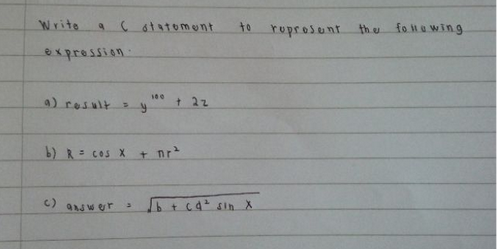 Write a C statement to represent the following
expression.
a) result = y¹⁰⁰ + 2z
b) R = cos X + πr²
c) answer = √(b + cd² sin X)